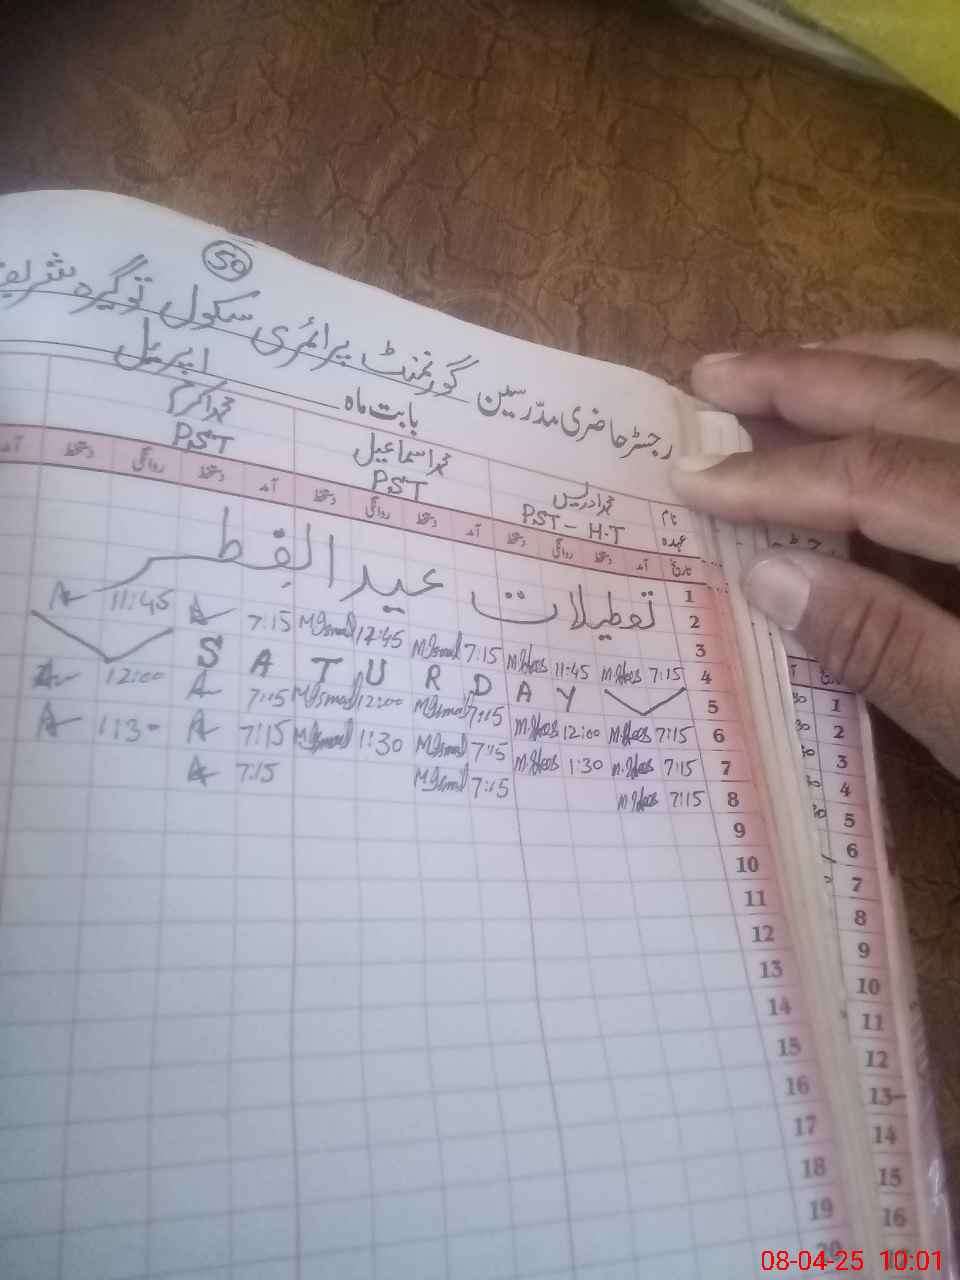 50
رجسٹر حاضری مدرسین گورنمنٹ پرائمری سکول توگیرہ شریف
بابت ماہ اپریل
نام محمد ادریس محمد اسماعیل محمد اکرم
عہدہ PST - H.T PST PST
تاریخ آمد دستخط روانگی دستخط آمد دستخط روانگی دستخط آمد دستخط روانگی دستخط آمد
1
2 تعطیلات عید الفطر
3
4 7:15 11:45 7:15 M Ismail 12:45 M Ismail 7:15 A 11:45 A
5 SATURDAY
6 7:15 12:00 7:15 M Ismail 12:00 M Ismail 7:15 A 12:00 A
7 7:15 1:30 7:15 M Ismail 1:30 M Ismail 7:15 A 1:30 A
8 7:15 7:15 M Ismail 7:15 A
9
10
11
12
13
14
15
16
17
18
19
20
تاریخ
1
2
3
4
5
6
7
8
9
10
11
12
13
14
15
16
08-04-25 10:01